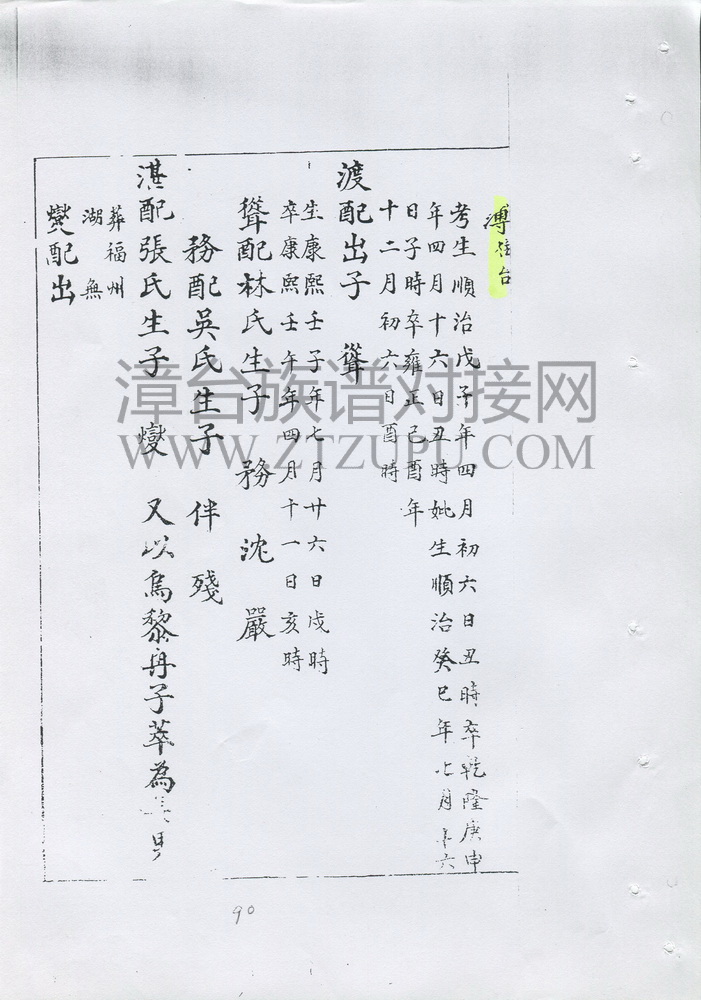 溥往台
考生順治戊子年四月初六日丑時卒乾隆庚申
年四月十六日丑時妣生順治癸巳年七月 六
日子時卒雍正己酉年
十二月初六日酉時
渡配出子 聳
生康熙壬子年七月廿六日戌時
卒康熙壬午年四月十一日亥時
聳配林氏生子 務 沈 嚴
務配吳氏生子 伴 殘
湛配張氏生子 燮 又以烏黎舟子萃為
葬福州
湖 無
燮配出
漳台族谱对接网
WWW.ZTZUPU.COM
90